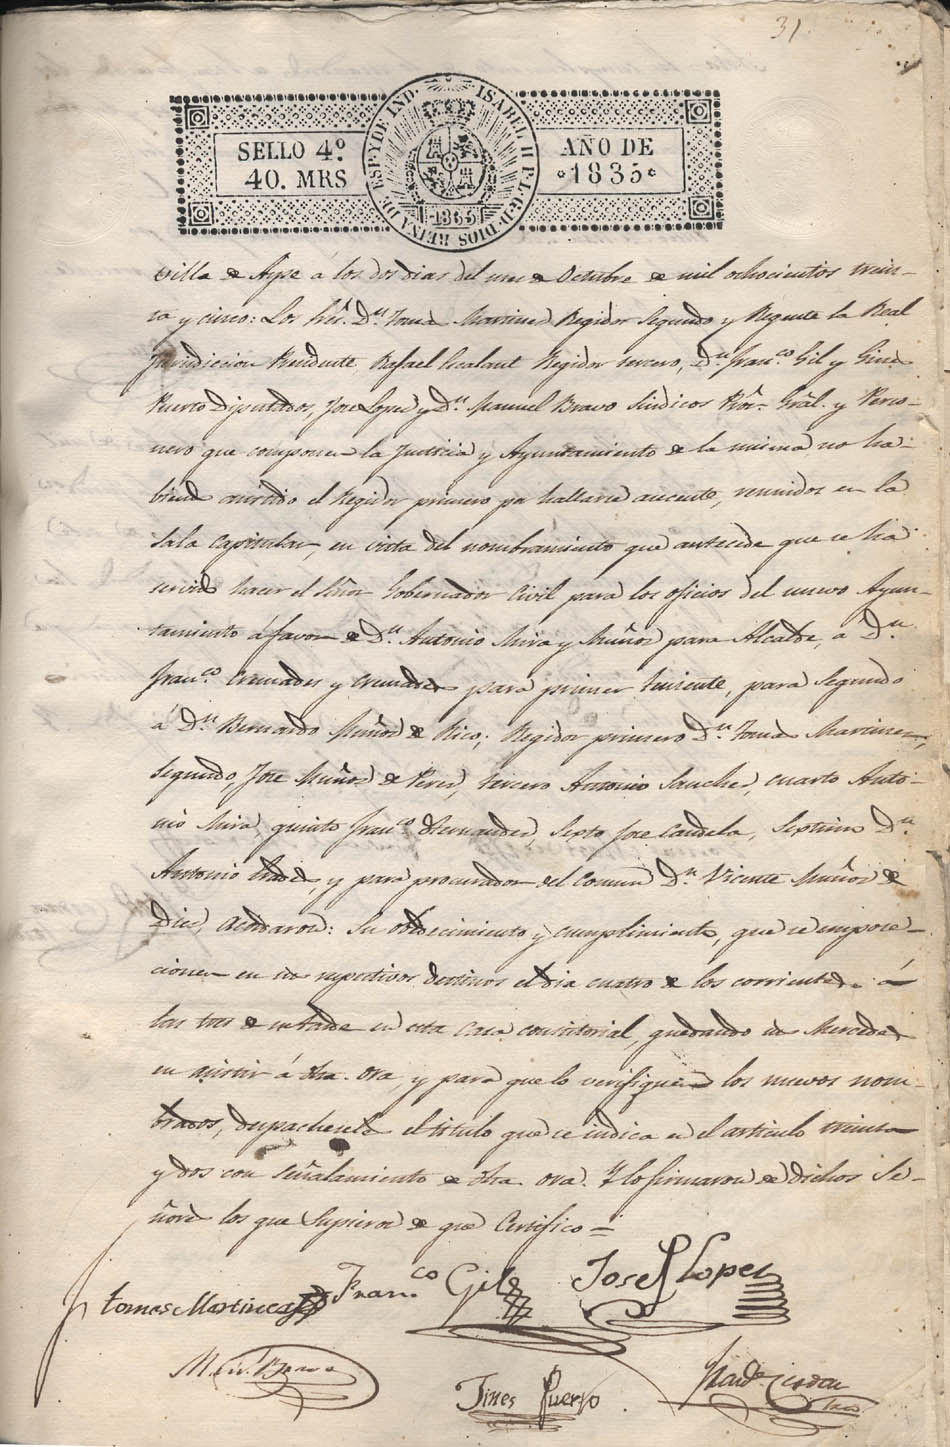 31
SELLO 4º
40. MRS
ISABEL II P.L.G.D. DIOS REINA DE ESP. Y DE IND.
1835
AÑO DE
1835
Villa de Aspe á los dos dias del mes de Octubre de mil ochocientos trein-
ta y cinco: Los Sres. Dn. Tomas Martinez Regidor Segundo y Regente la Real
Jurisdicion Rafael Escalant Regidor tercero, Dn. Franco. Gil y Gines
Puerto Diputados, Jose Lopez y Dn. Manuel Bravo Sindicos Pror. Gral. y Perso-
nero que componen la Justicia y Ayuntamiento de la misma no ha-
biendo asistido el Regidor primero por hallarse ausente, reunidos en la
Sala Capitular, en vista del nombramiento que antecede que se ha
servido hacer el Señor Gobernador Civil para los oficios del nuevo Ayun-
tamiento á favor de Dn. Antonio Mira y Muñoz para Alcalde, a Dn.
Franco. Cremades y Cremades para primer teniente, para segundo
á Dn. Bernardo Muñoz de Rico; Regidor primero Dn. Tomas Martinez,
segundo, Jose Muñoz de Perez, tercero Antonio Sanchez, cuarto Anto-
nio Mira, quinto Franco. Hernandez, Sexto Jose Candela, Septimo Dn.
Antonio y para procurador del Comun Dn. Vicente Muñoz de
Diez, Acordaron: Su obedecimiento y cumplimiento, que se impose-
cionen en sus respectivos destinos el dia cuatro de los corrientes á
las tres de su tarde en esta Casa consistorial, quedando sus Mercedes
en asistir á dha. ora, y para que lo verifiquen los nuevos nom-
brados, despacheseles el titulo que se indica en el articulo treinta
y dos con señalamiento de dha. ora. Y lo firmaron de dichos Se-
ñores los que Supieron de que Certifico =
tomas Martinez Franco. Gil Josef Lopez
M. Bravo
Jines Puerto